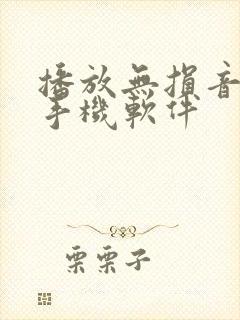 播放無損音
手機軟件
栗栗子